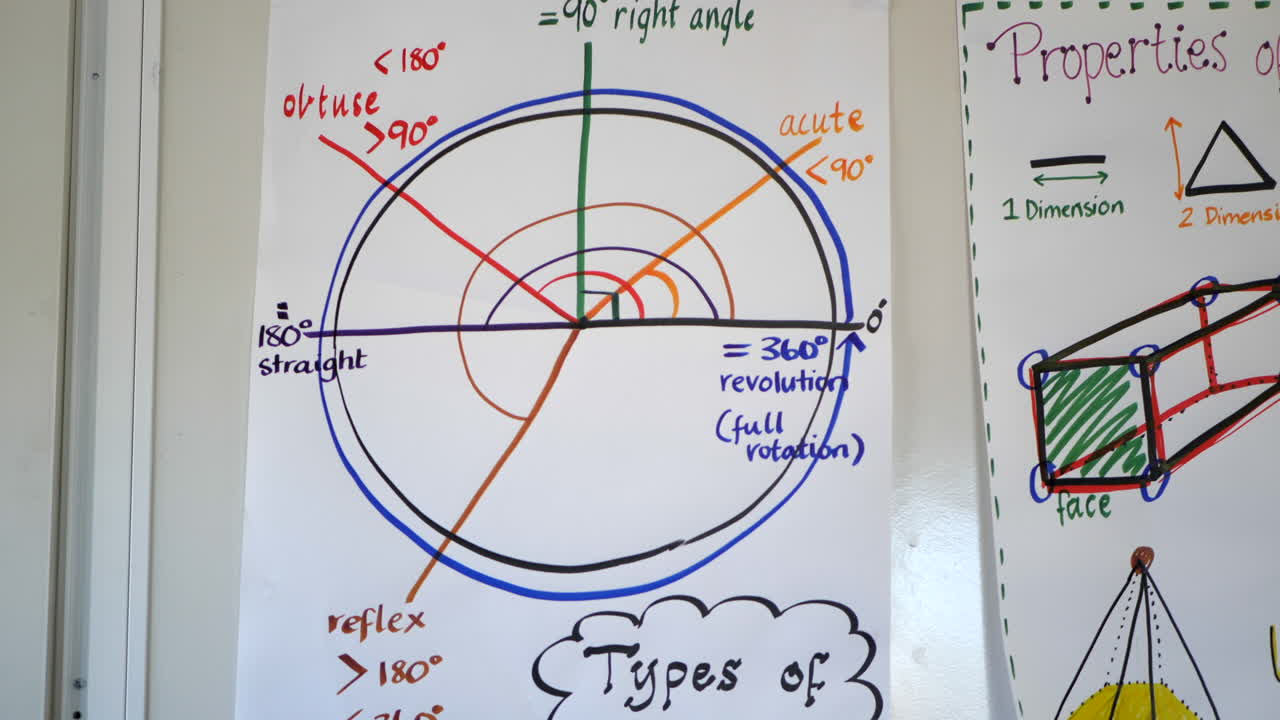 = 90° right angle
< 180°
obtuse
> 90°
acute
< 90°
0°
=
180°
straight
= 360°
revolution
(full
rotation)
reflex
> 180°
< 360°
Types of
Properties of
1 Dimension
2 Dimensi
face